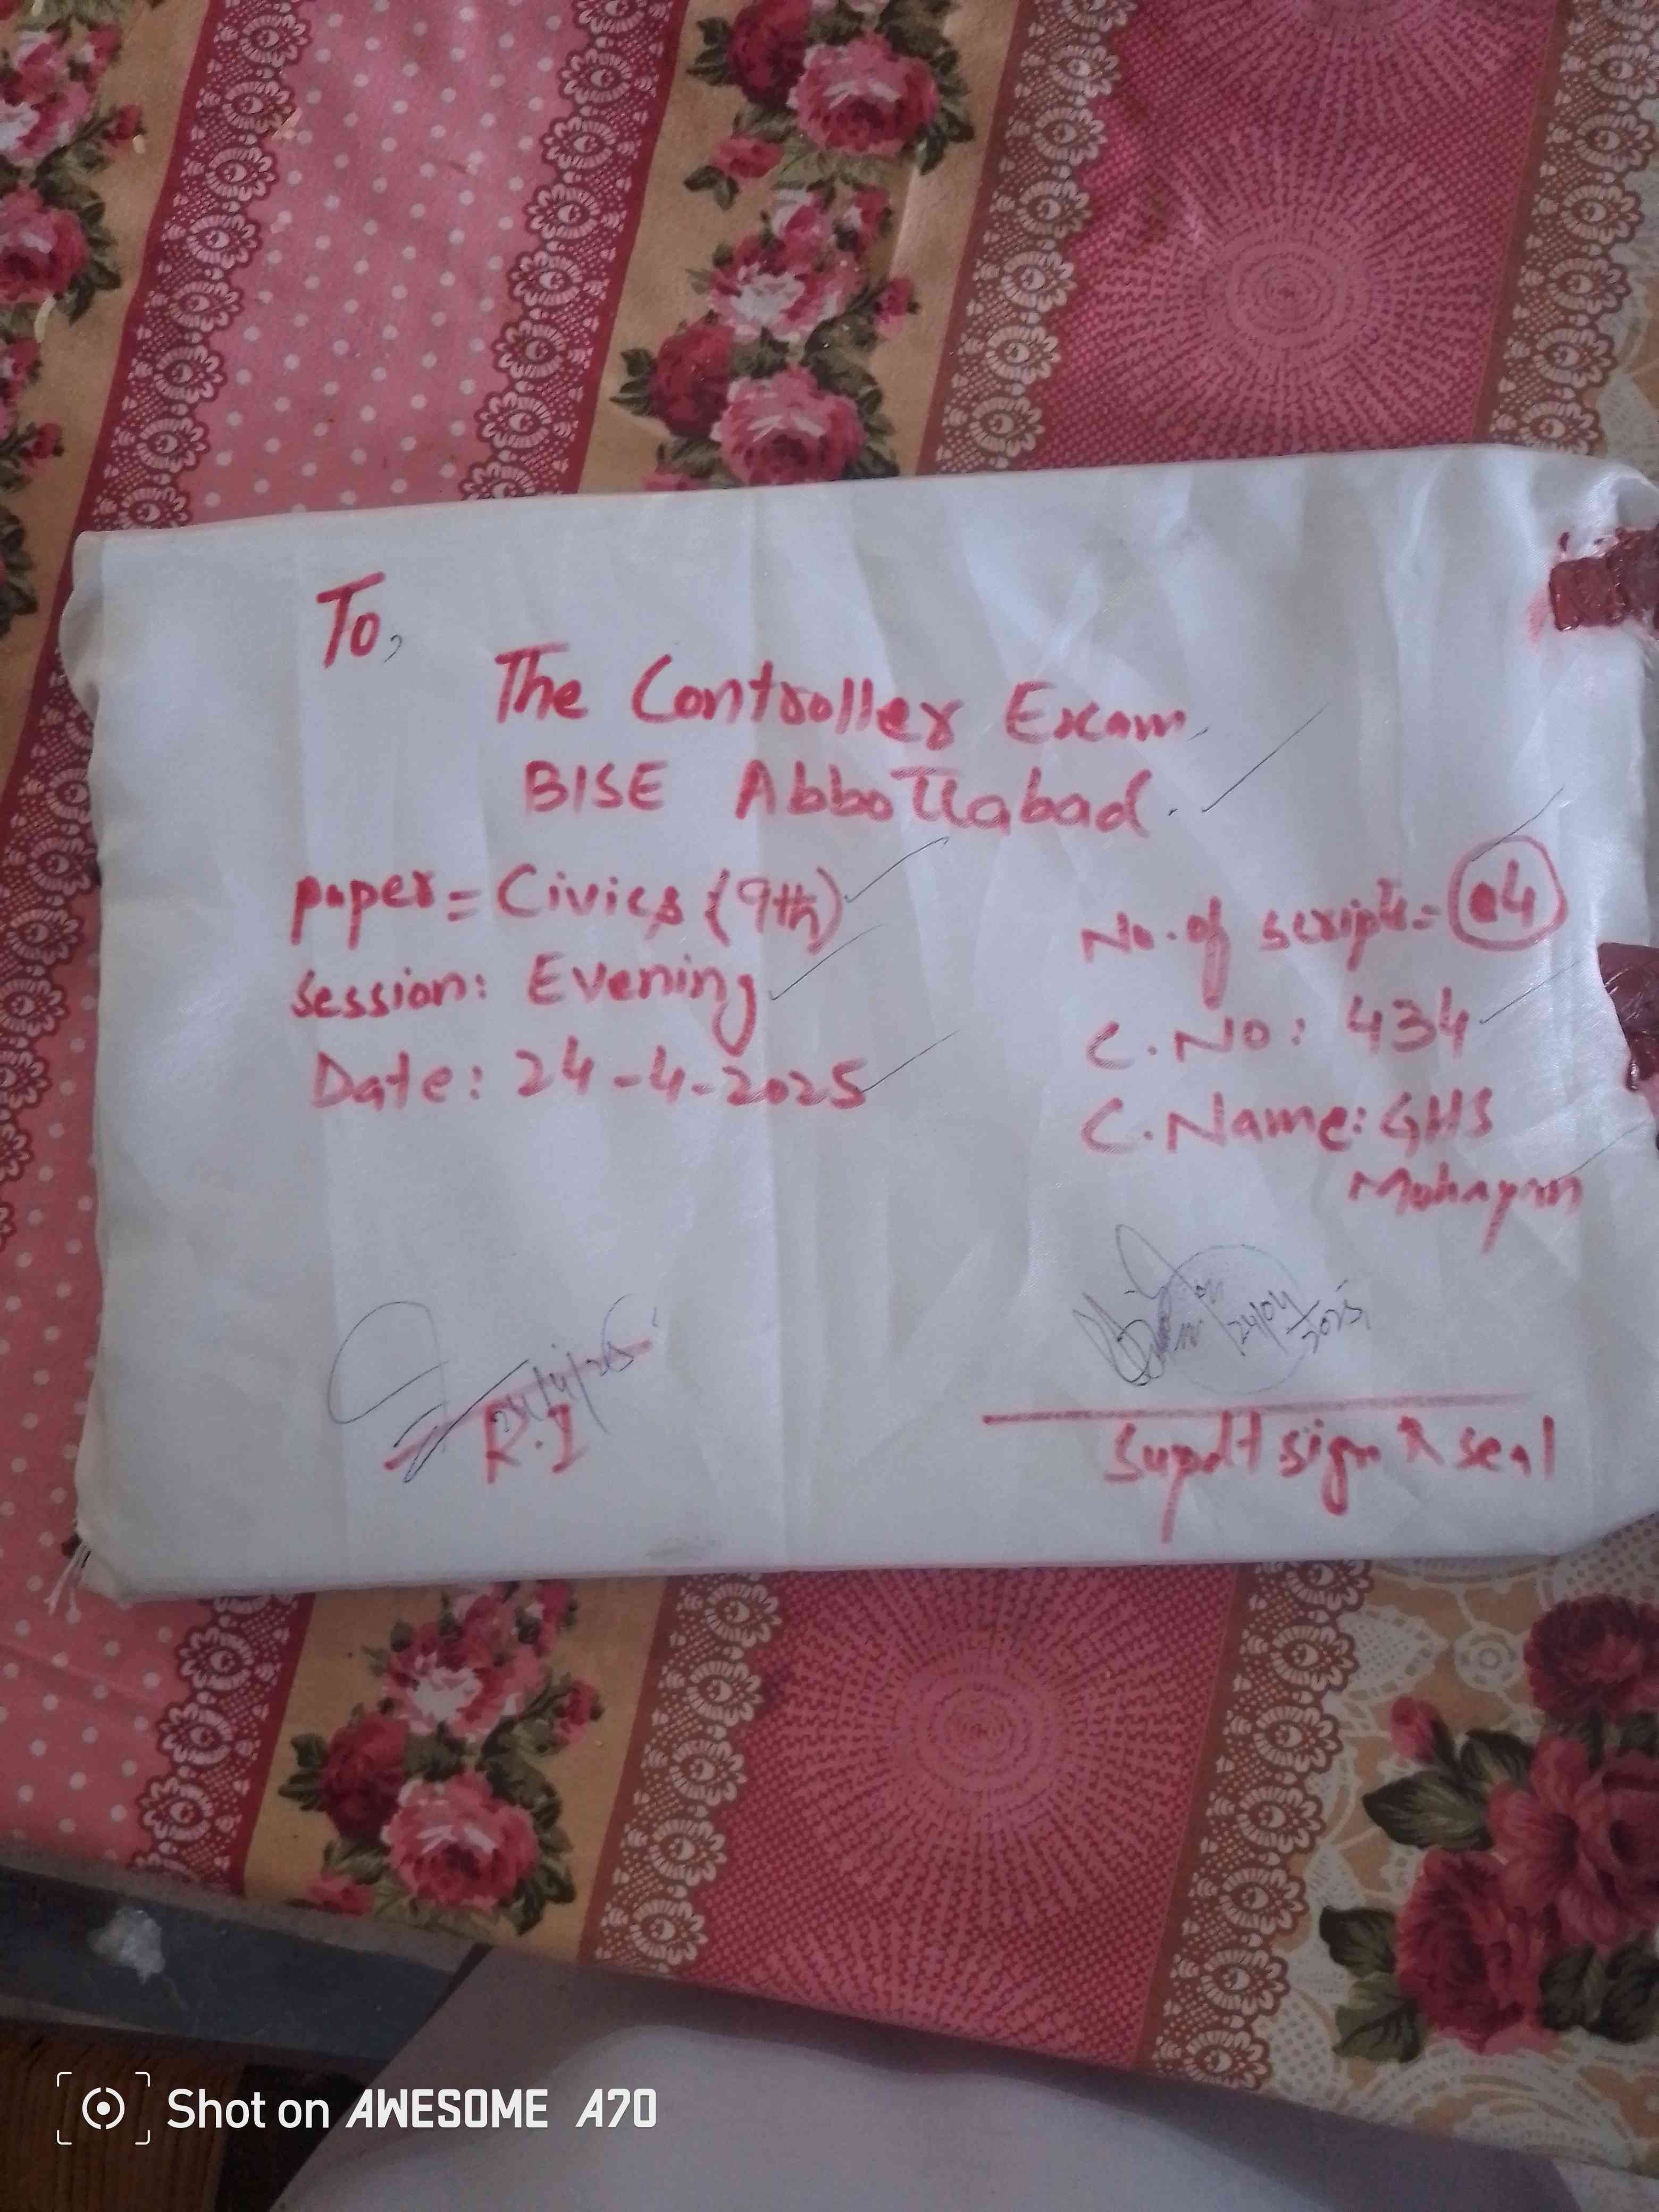 To,
The Controller Exam
BISE Abbottabad.
paper = Civics (9th)
session: Evening
Date: 24-4-2025
No. of scripts = 04
C.No: 434
C.Name: GHS
24/4/25
R.I
24/04/2025
Supdt sign & seal
Shot on AWESOME A70